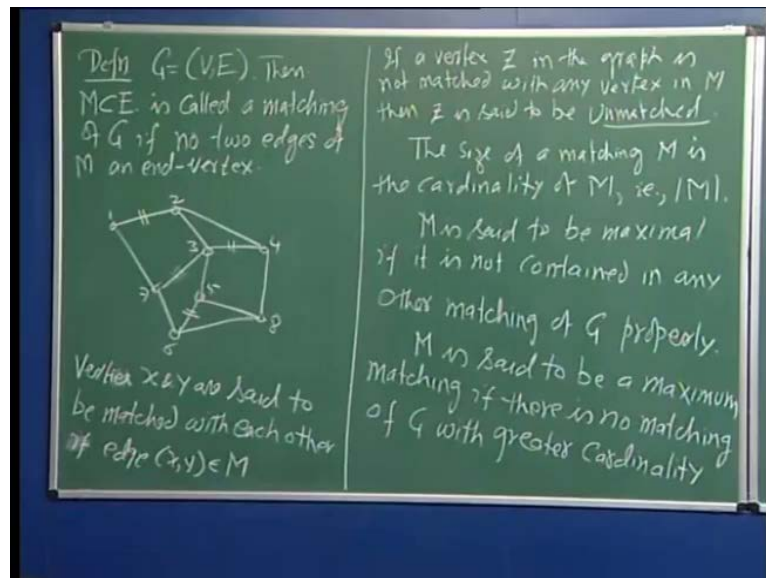 Defn G=(V,E). Then
M⊂E is called a matching
of G if no two edges of
M an end-vertex.
1 2
3 4
7 5
6 8
Vertices x & y are said to
be matched with each other
if edge (x,y) ∈ M
If a vertex z in the graph is
not matched with any vertex in M
then z is said to be Unmatched.
The size of a matching M is
the cardinality of M, ie., |M|.
M is said to be maximal
if it is not contained in any
other matching of G properly.
M is said to be a maximum
matching if there is no matching
of G with greater cardinality